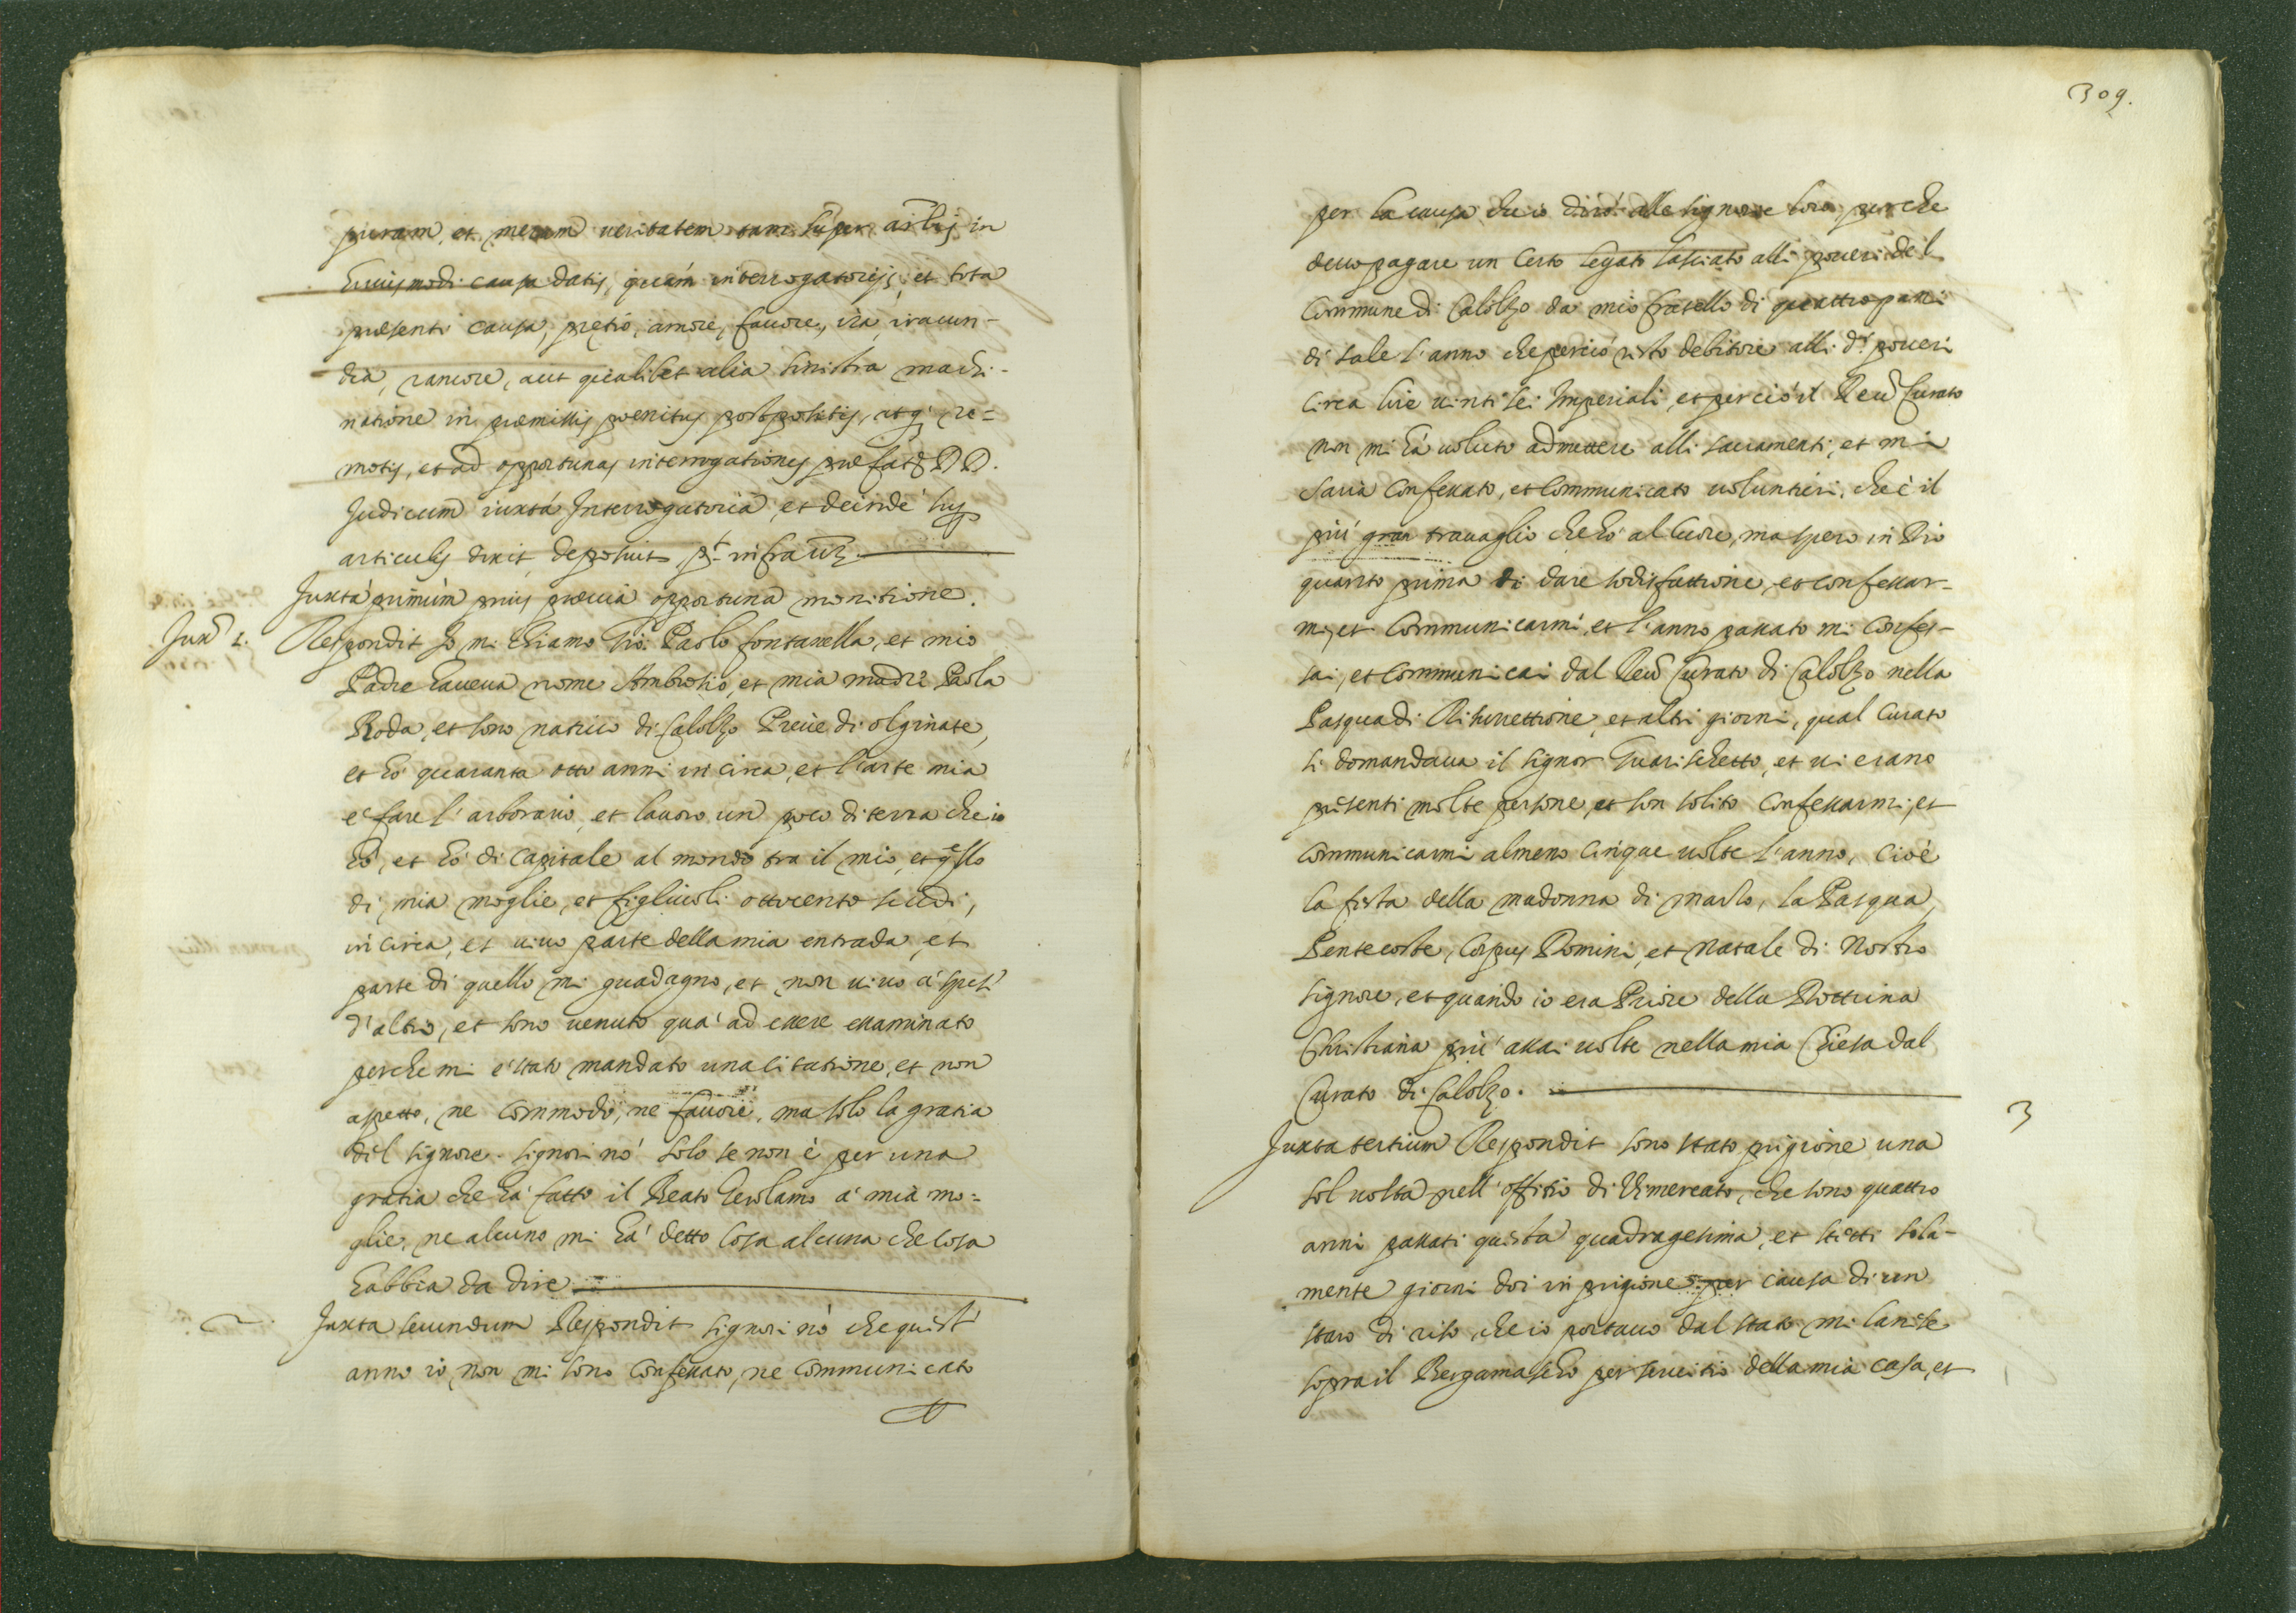 puram, et meram ueritatem tam super artlis in
huiusmodi causa datis, quám interrogatorijs, et tota
præsenti causa, pretio, amore, fauore, ira, iracun-
dia, rancore, aut qualibet alia sinistra machi-
natione in præmissis poenitus postpositis, atq; re=
motis, et ad opportunas interrogationes præfatoȝ DD.
Judicum iuxtá Interrogatoria, et deinde' sup
articulis dixit, deposuit, pt. infra uȝ.
Juxtá primùm prius præuia opportuna monitione.
Jux. 1. Respondit Jo mi chiamo Gio. Paolo fontanella, et mio
Padre haueua nome Ambrosio, et mia madre Paola
Roda, et sono natiuo di Calolzo Preue di olginate,
et hó quaranta otto anni in circa, et l'arte mia
e' fare l'arborario, et lauoro un poco di terra che io
hó, et hó di Capitale al mondo tra il mio, et qllo
di mia moglie, et figliuoli ottocento scudi,
in circa, et uiuo parte della mia entrada, et
parte di quello mi guadagno, et non uiuo a' spesi
d'altro, et sono uenuto qua' ad essere essaminato
perche mi e' stato mandato una citatione, et non
aspetto, ne commodo, ne fauore, ma solo la gratia
del signore. signori nó solo se non è per una
gratia che há fatto il Beato Gerolamo a' mia mo=
glie, ne alcuno mi há detto cosa alcuna che cosa
habbia da dire
2. Juxta secundum Respondit signori nò che quest'
anno io non mi sono Confessato, ne communicato
309.
per la causa che io diró alle signorie loro perche
deuo pagare un certo legato lasciato alli poueri del
Commune di Calolzo da mio fratello di quattro pari
di sale l'anno che perció resto debitore alli di poueri
circa lire uinti sei Imperiali, et perció il Reudo Curato
non mi há uoluto admettere alli sacramenti, et mi
saria Confessato, et Communicato uoluntieri, che è il
piu' gran trauaglio che hó al Cuore, ma spero in Dio
quanto prima di dare sodisfattione, et confessar-
mi, et Communicarmi, et l'anno passato mi Confes-
sai, et communicai dal Reudo Curato di Calolzo nella
Pasqua di Risurrettione, et altri giorni, qual Curato
si domandaua il signor Guarischetto, et ui erano
presenti molte persone, et son solito confessarmi, et
communicarmi almeno Cinque uolte l'anno, cioè
la festa della madonna di marzo, la Pasqua,
Pentecoste, Corpus Domini, et Natale di Nostro
signore, et quando io era Priore della Dottrina
Christiana piu' assai uolte nella mia Chiesa dal
Curato di Calolzo.
3
Juxta tertium Respondit sono stato prigione una
sol uolta nell'offitio di Vimercato, che sono quattro
anni passati questa quadragesima, et stetti sola-
mente giorni doi in prigione per causa di un
staro di riso che io portauo dal stato milanese
sopra il Bergamascho per seruitio della mia casa, et